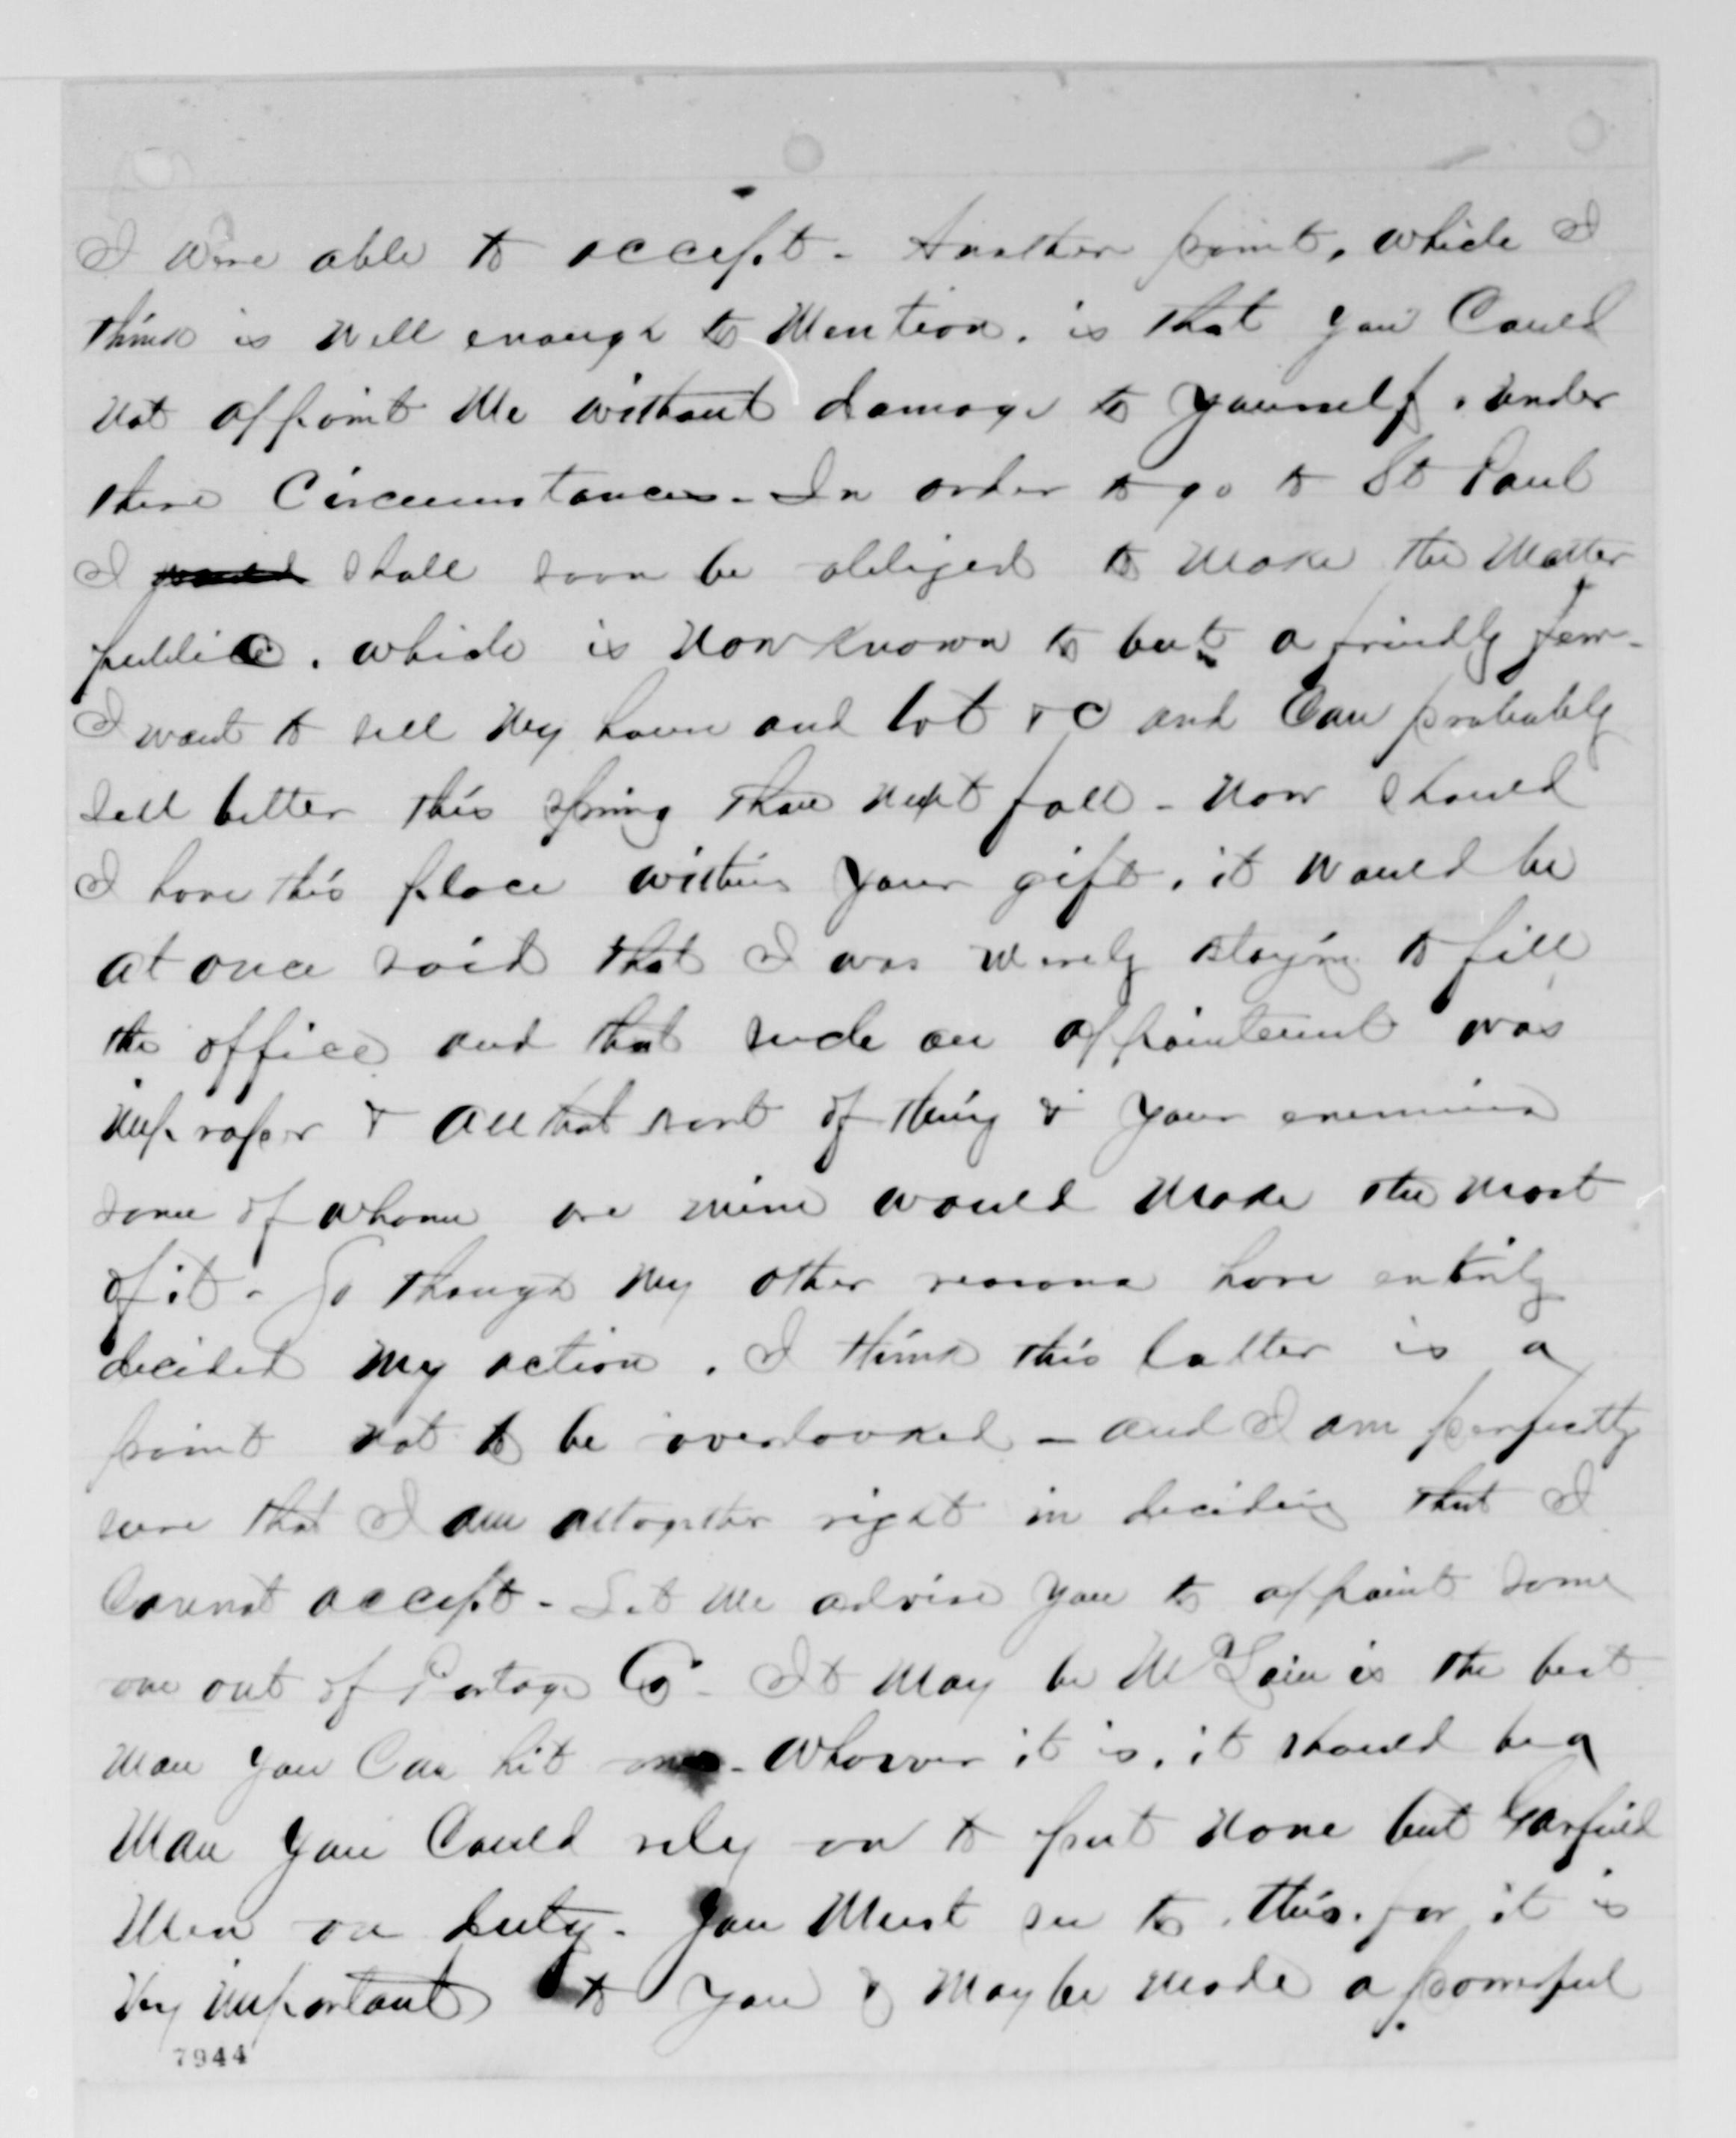 I were able to accept - Another point, which I
think is well enough to mention, is that you could
not appoint me without damage to yourself, under
these circumstances - In order to go to St Paul
I shall soon be obliged to make the matter
public, which is now known to but a friendly few -
I want to sell my house and lot &c and can probably
sell better this spring than next fall - now should
I have this place within your gift, it would be
at once said that I was merely staying to fill
the office and that such an appointment was
improper & all that sort of thing & your enemies
some of whom are mine would make the most
of it - So though my other reasons have entirely
decided my action, I think this latter is a
point not to be overlooked - and I am perfectly
sure that I am altogether right in deciding that I
cannot accept - Let me advise you to appoint some
one out of Portage Co - It may be McLain is the best
man you can hit on - Whoever it is, it should be a
man you could rely on to put none but Garfield
men on duty - You must see to this, for it is
very important to you & may be made a powerful
7944